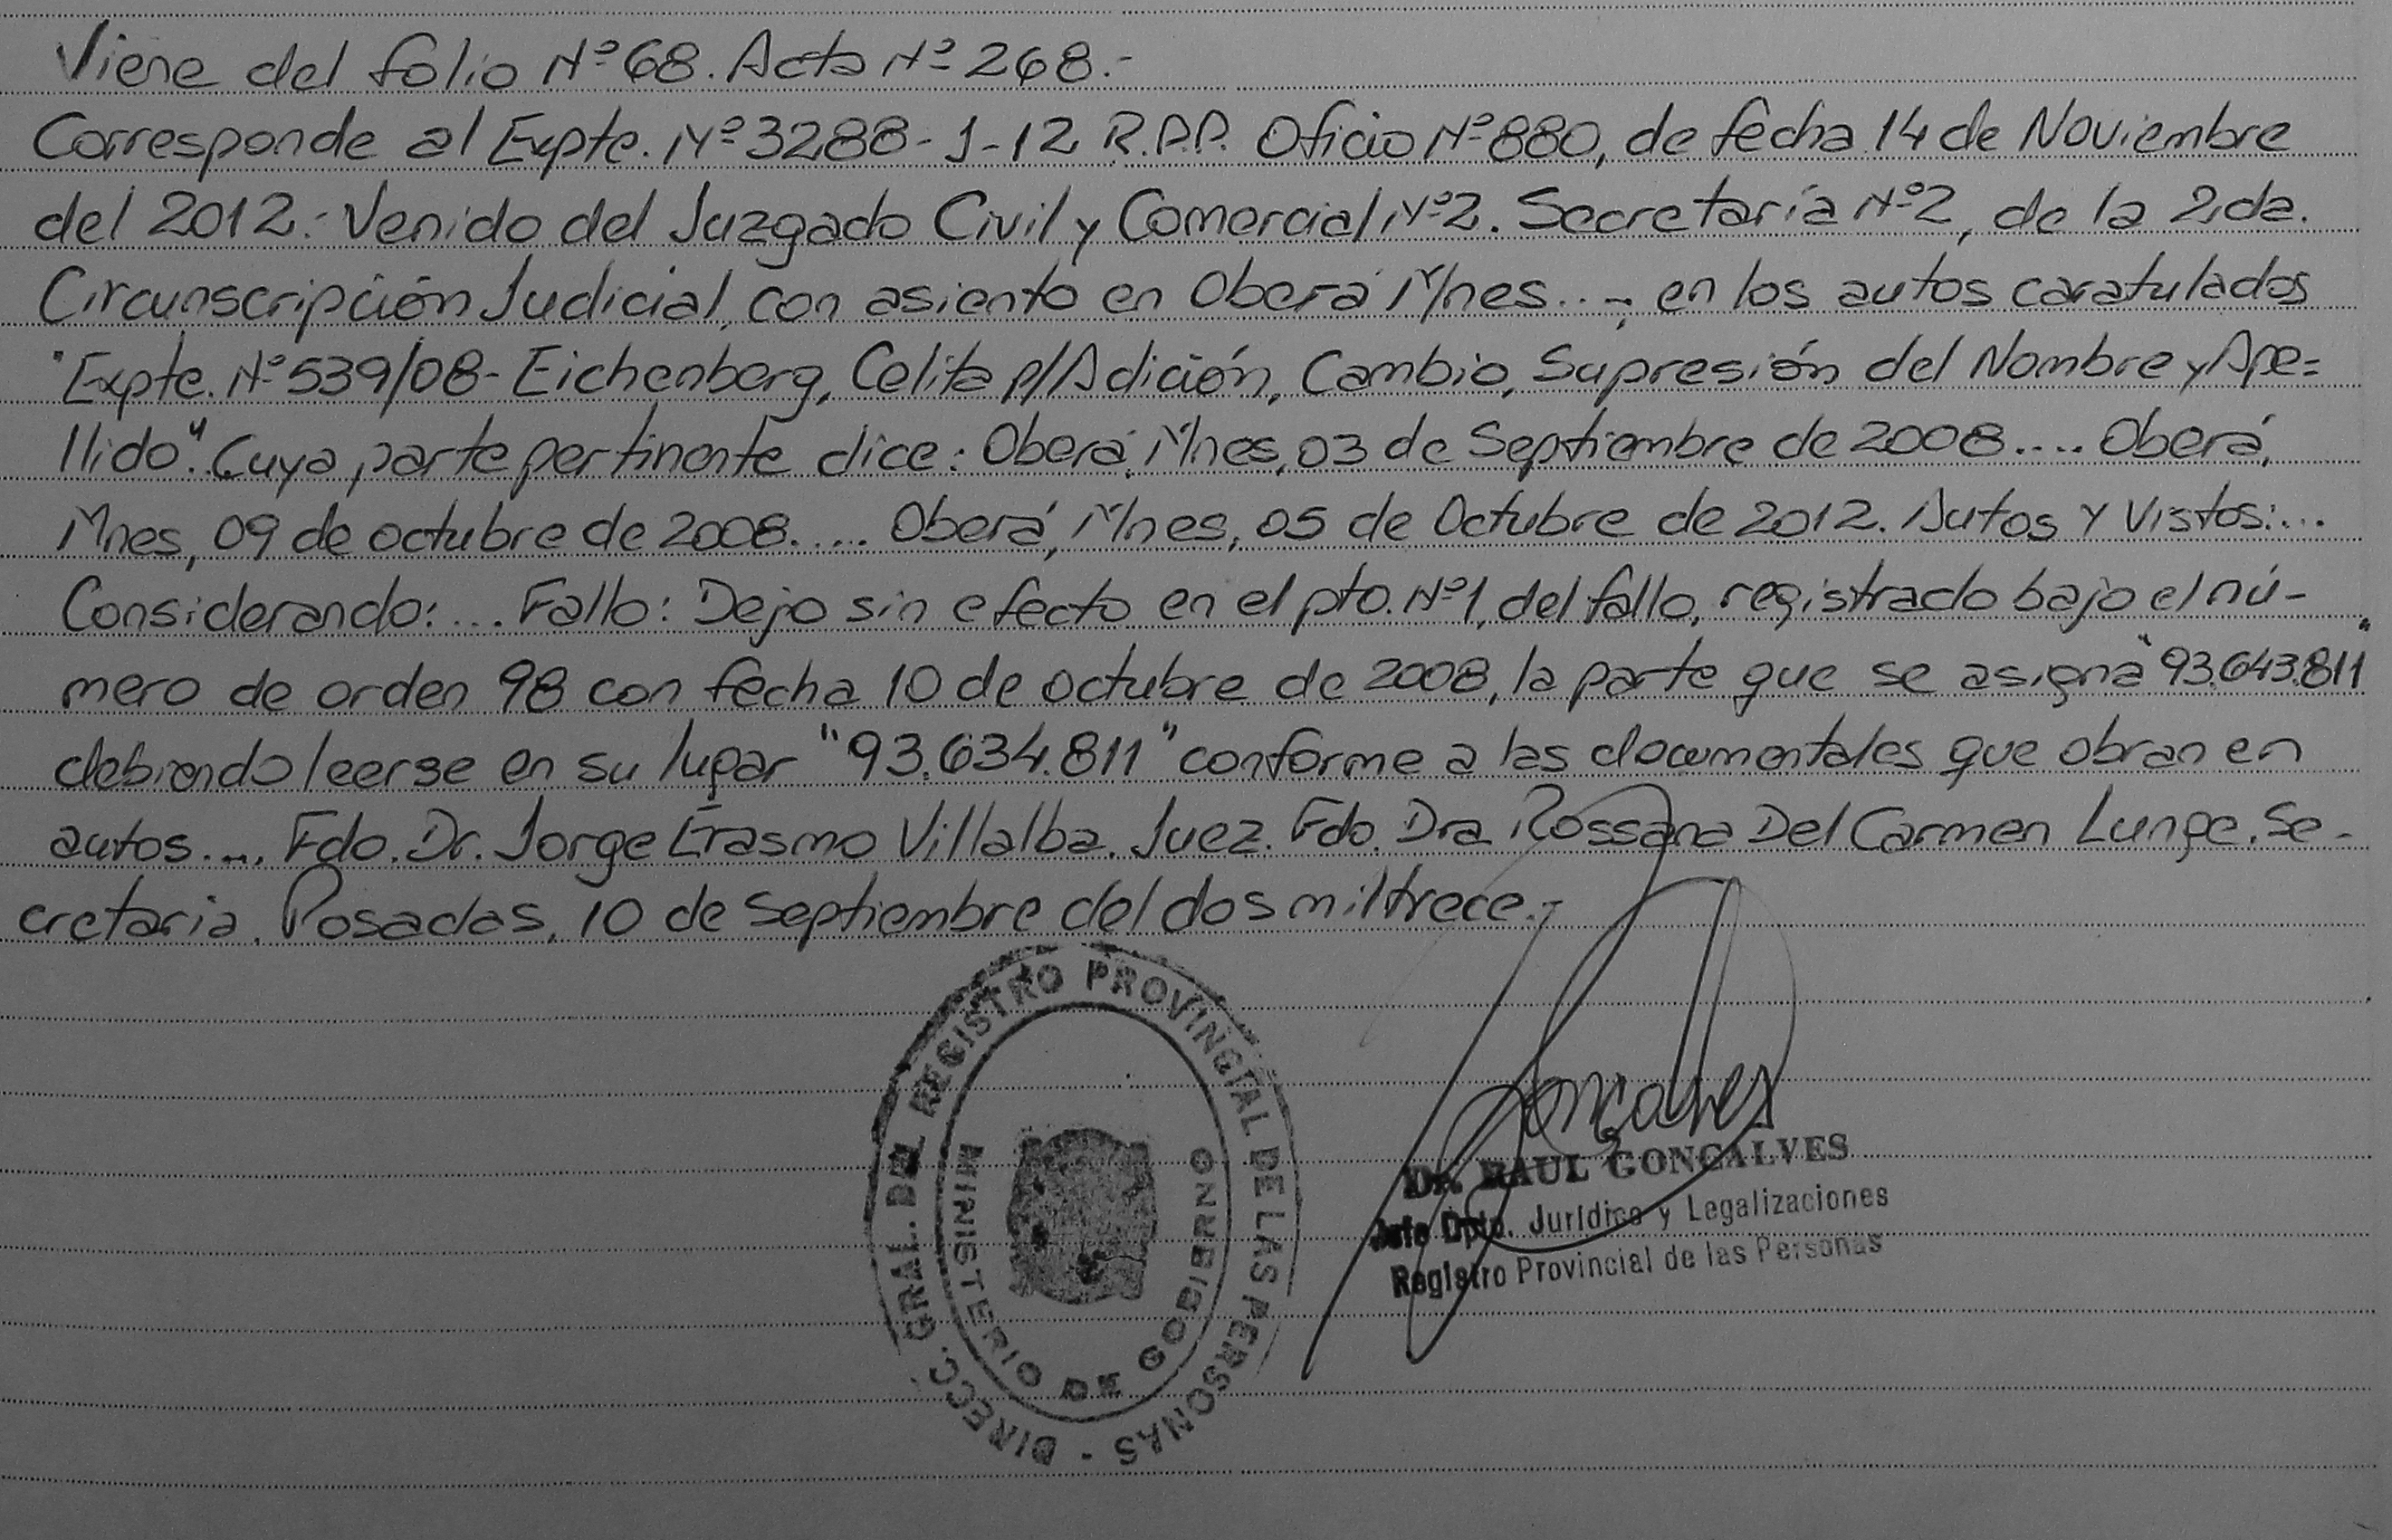 Viene del folio Nº 68. Acta Nº 268.-
Corresponde al Expte. Nº 3288-J-12 R.P.P. Oficio Nº 880, de fecha 14 de Noviembre
del 2012.- Venido del Juzgado Civil y Comercial Nº 2. Secretaría Nº 2, de la 2da.
Circunscripción Judicial, con asiento en Oberá Mnes...-, en los autos caratulados
"Expte. Nº 539/08- Eichenberg, Celita p/Adición, Cambio, Supresión del Nombre y Ape=
llido". Cuya parte pertinente dice: Oberá, Mnes, 03 de Septiembre de 2008.... Oberá,
Mnes, 09 de octubre de 2008..... Oberá, Mnes, 05 de Octubre de 2012. Autos y Vistos:...
Considerando:... Fallo: Dejo sin efecto en el pto. Nº 1, del fallo, registrado bajo el nú-
mero de orden 98 con fecha 10 de octubre de 2008, la parte que se asigna "93.643.811"
debiendo leerse en su lugar "93.634.811" conforme a las documentales que obran en
autos.... Fdo. Dr. Jorge Erasmo Villalba. Juez. Fdo. Dra Rossana Del Carmen Lunge. Se-
cretaria. Posadas, 10 de Septiembre del dos mil trece.-
DIRECC. GRAL. DEL REGISTRO PROVINCIAL DE LAS PERSONAS -
MINISTERIO DE GOBIERNO
Goncalves
Dr. RAUL GONCALVES
Jefe Dpto. Jurídico y Legalizaciones
Registro Provincial de las Personas